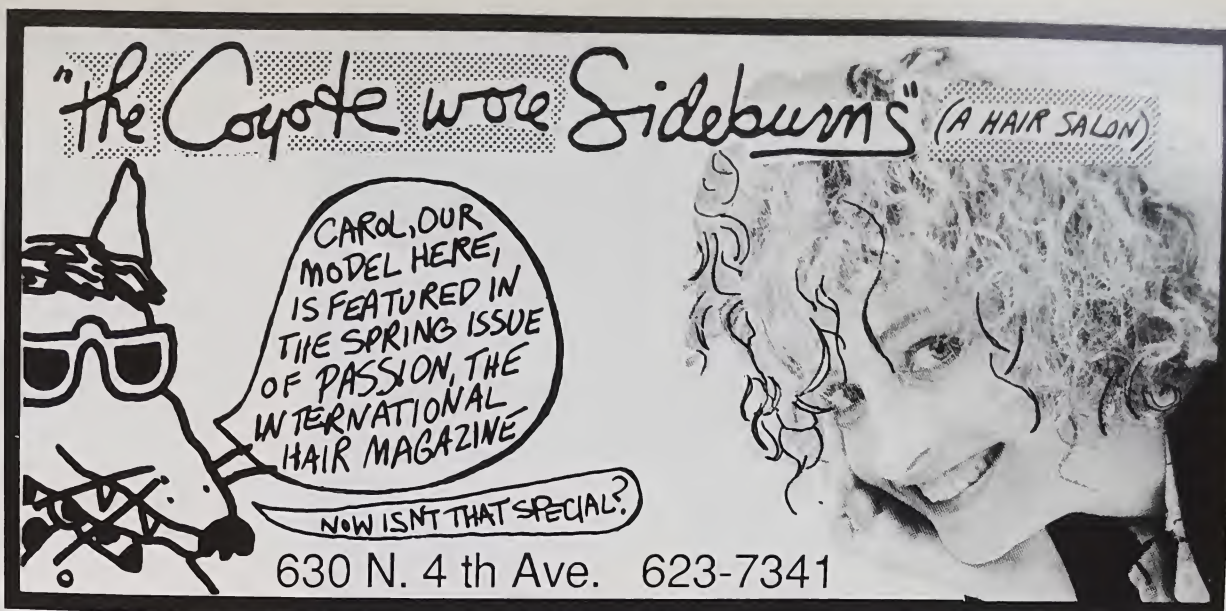 "the Coyote wore Sideburns" (A HAIR SALON)
CAROL, OUR
MODEL HERE,
IS FEATURED IN
THE SPRING ISSUE
OF PASSION, THE
INTERNATIONAL
HAIR MAGAZINE
NOW ISN'T THAT SPECIAL?
630 N. 4 th Ave. 623-7341